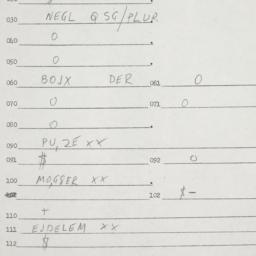 030 NEGL Q SG/PLUR
040 O
050 O
060 BOJX DER 061 O
070 O 071 O
080 O
090 PU,ZE XX
091 $ 092 O
100 MO,GGER XX
102 $-
110 +
111 EJDELEM XX
112 $